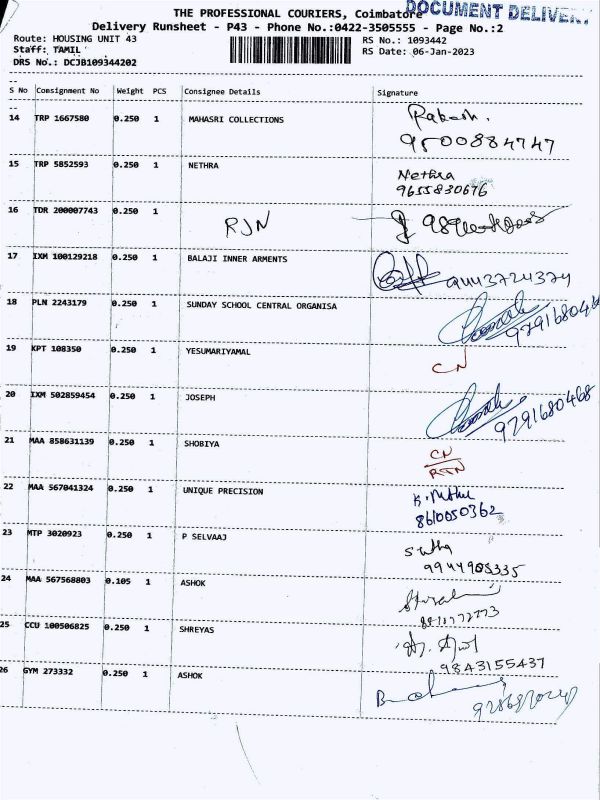 THE PROFESSIONAL COURIERS, Coimbatore DOCUMENT DELIVERY
Delivery Runsheet - P43 - Phone No.:0422-3505555 - Page No.:2
Route: HOUSING UNIT 43 RS No.: 1093442
Staff: TAMIL RS Date: 06-Jan-2023
DRS No.: DCJB109344202
S No Consignment No Weight PCS Consignee Details Signature
14 TRP 1667580 0.250 1 MAHASRI COLLECTIONS Rakesh.
9500884747
15 TRP 5852593 0.250 1 NETHRA Nethra
9655830676
16 TDR 200007743 0.250 1 RJN
17 IXM 100129218 0.250 1 BALAJI INNER ARMENTS 9443724374
18 PLN 2243179 0.250 1 SUNDAY SCHOOL CENTRAL ORGANISA
9791680468
19 KPT 108350 0.250 1 YESUMARIYAMAL CN
20 IXM 502859454 0.250 1 JOSEPH
9791680468
21 MAA 858631139 0.250 1 SHOBIYA CN
RTN
22 MAA 567041324 0.250 1 UNIQUE PRECISION
8610050362
23 MTP 3020923 0.250 1 P SELVAAJ
9944905335
24 MAA 567568803 0.105 1 ASHOK
25 CCU 100506825 0.250 1 SHREYAS
9843155437
26 GYM 273332 0.250 1 ASHOK